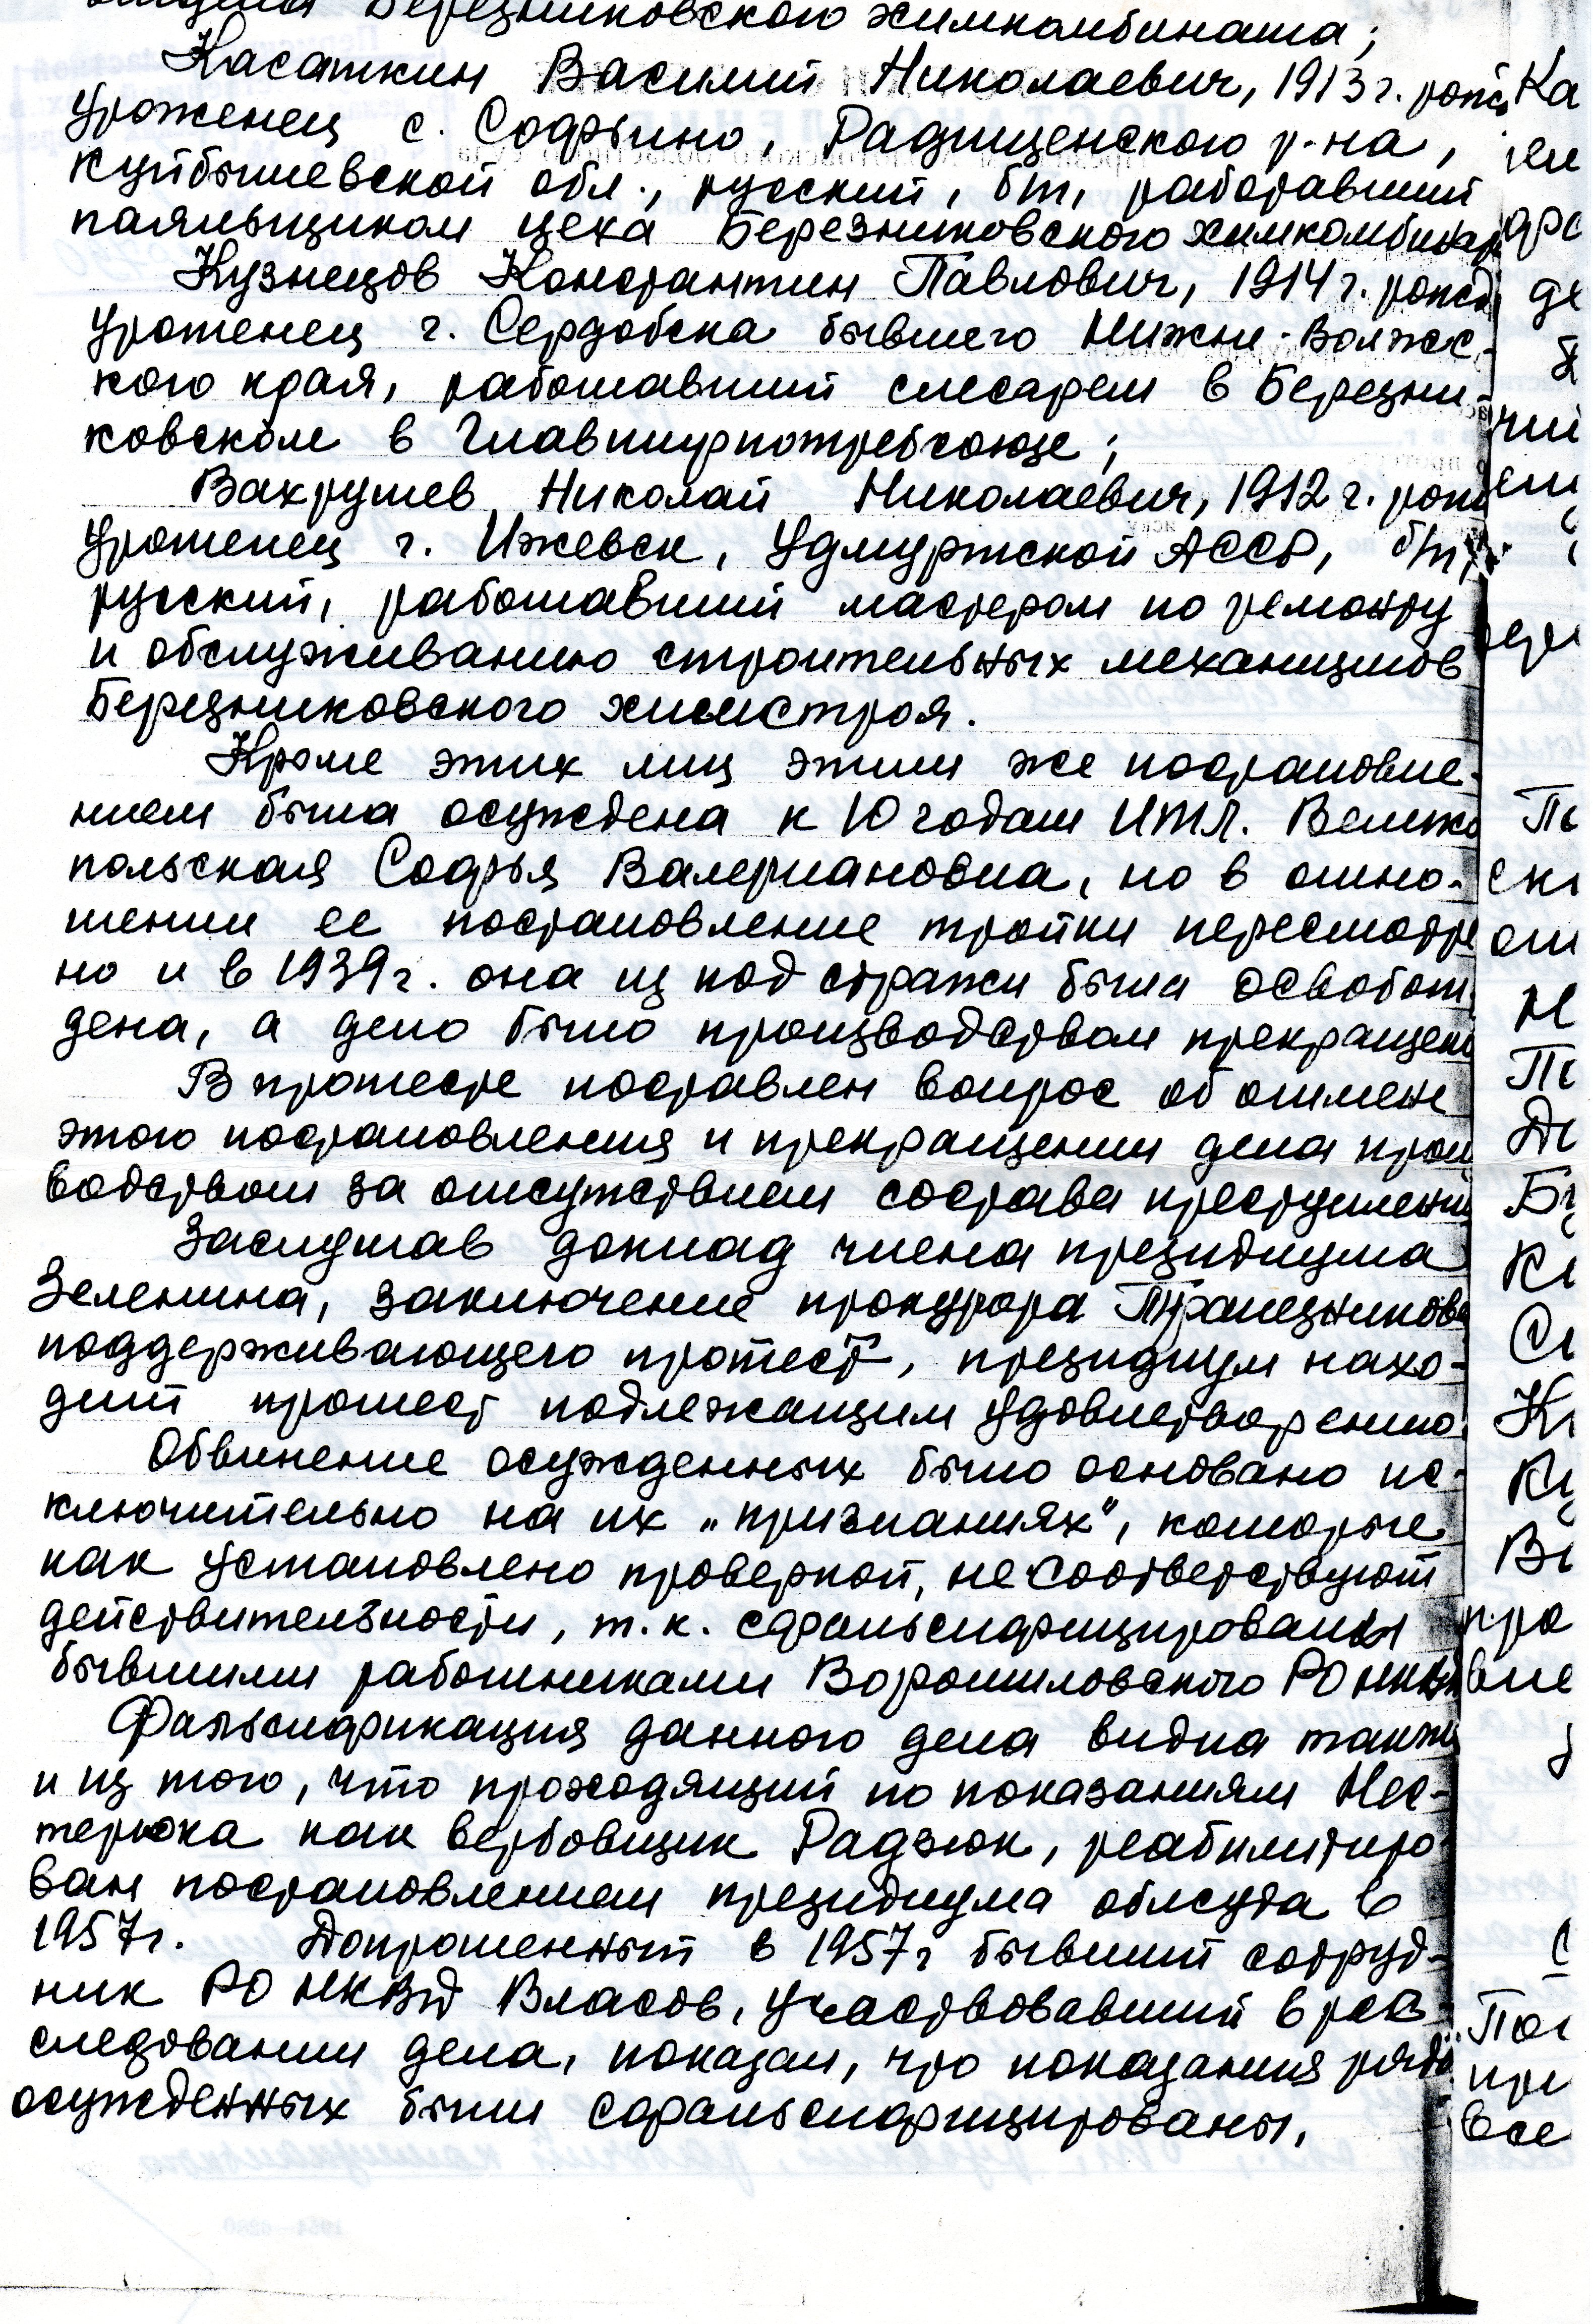 Березниковского химкомбината;
Касаткин Василий Николаевич, 1913 г. рожд
Уроженец с. Софьино, Радищенского р-на,
Куйбышевской обл., русский, б/п, работавший
паяльщиком цеха Березниковского химкомбинат
Кузнецов Константин Павлович, 1914 г. рожд
Уроженец г. Сердобска бывшего Нижне-Волжс-
кого края, работавший слесарем в Березни-
ковском в Главширпотребсоюзе;
Вахрушев Николай Николаевич, 1912 г. рожд
Уроженец г. Ижевск, Удмуртской АССР, б/п,
русский, работавший мастером по ремонту
и обслуживанию строительных механизмов
Березниковского химстроя.
Кроме этих лиц этим же постановле-
нием была осуждена к 10 годам ИТЛ. Велико
польская Софья Валериановна, но в отно-
шении ее постановление тройки пересмотре
но и в 1939 г. она из под стражи была освобож
дена, а дело было производством прекращено
В протесте поставлен вопрос об отмене
этого постановления и прекращении дела прои
водством за отсутствием состава преступлени
Заслушав доклад члена президиума
Зеленина, заключение прокурора Трапезникова
поддерживающего протест, президиум нахо-
дит протест подлежащим удовлетворению.
Обвинение осужденных было основано ис-
ключительно на их „признаниях", которые
как установлено проверкой, не соответствуют
действительности, т.к. сфальсифицированы
бывшими работниками Ворошиловского РО НКВД
Фальсификация данного дела видна также
и из того, что проходящий по показаниям Нес-
терюка как вербовщик Радзюк, реабилитиро-
ван постановлением президиума облсуда в
1957 г. Допрошенный в 1957 г бывший сотруд-
ник РО НКВД Власов, участвовавший в рас-
следовании дела, показал, что показания ряда
осужденных были сфальсифицированы,